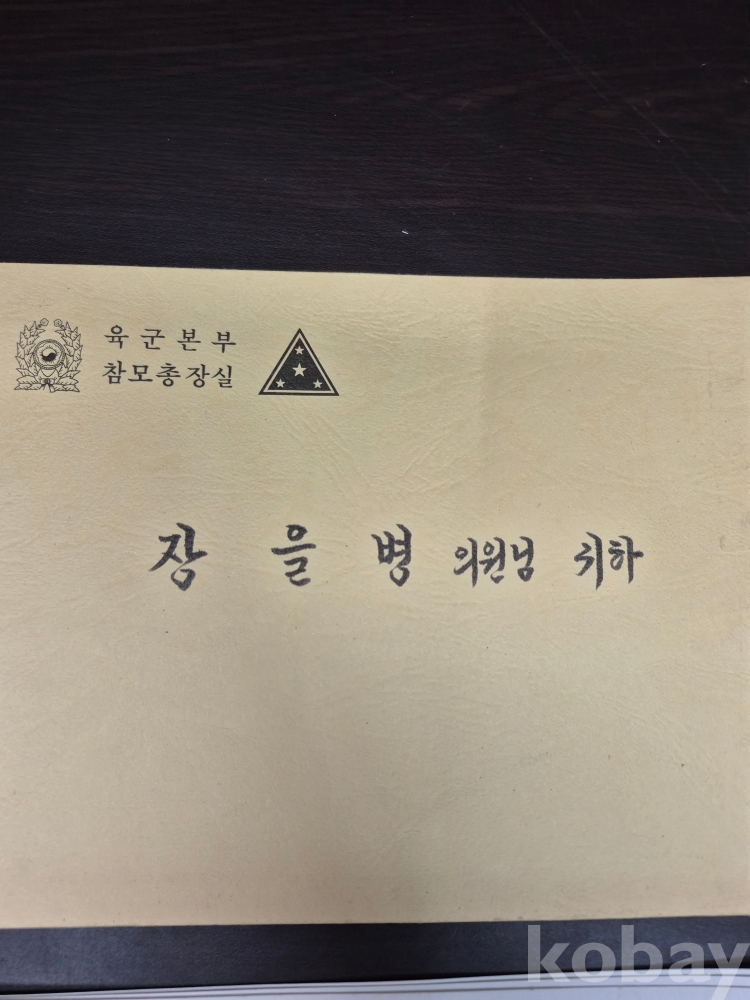 육군본부
참모총장실
장 을 병 의원님 귀하
kobay